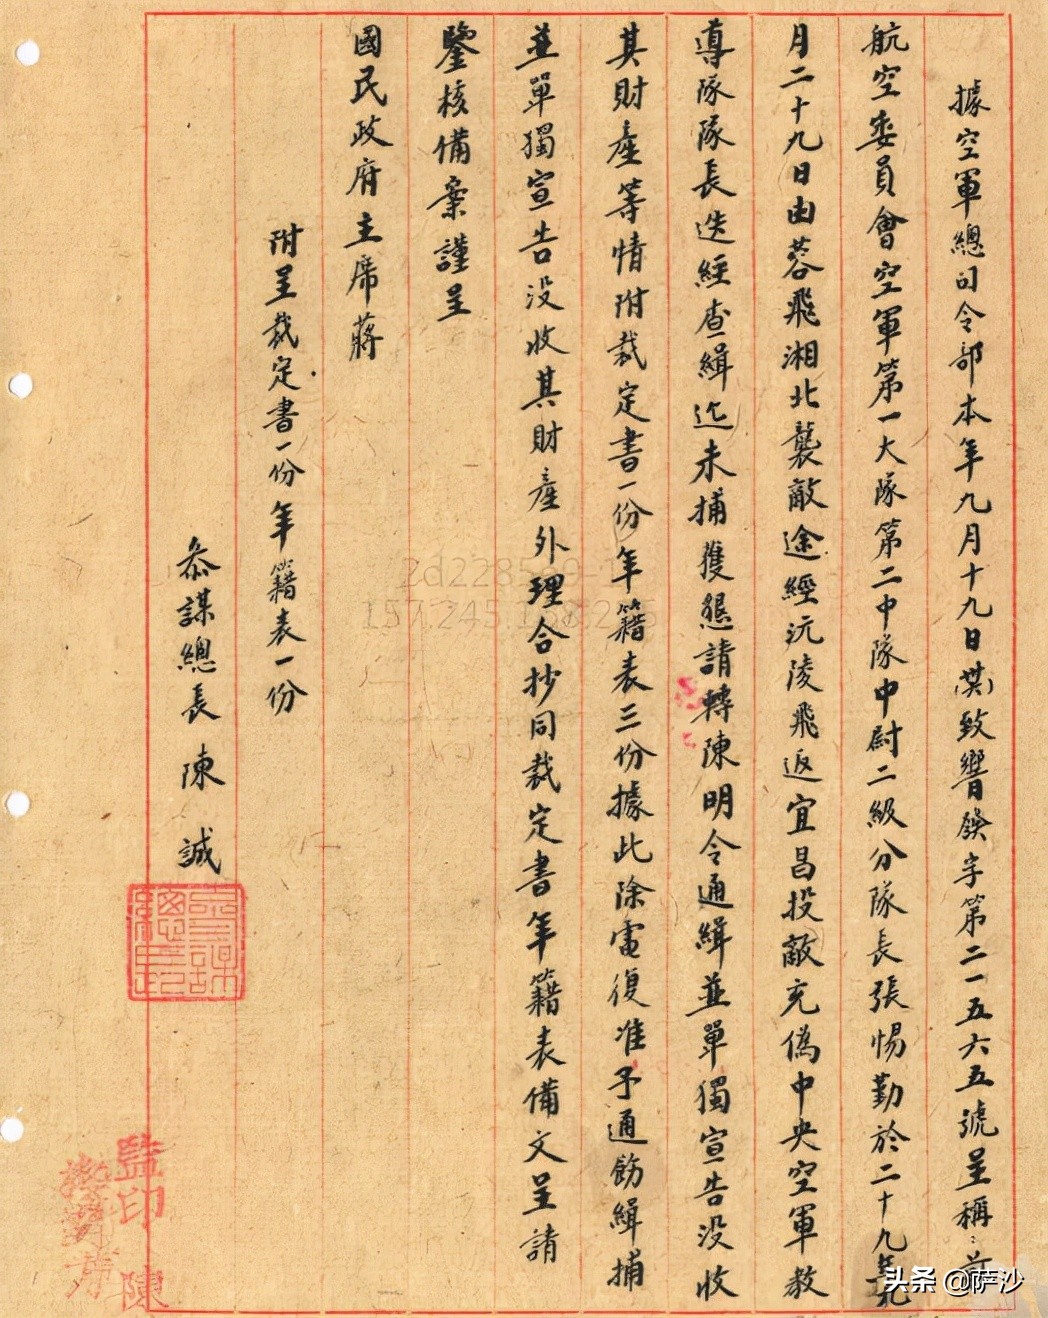 據空軍總司令部本年九月十九日致響發字第二一五六五號呈稱：前
航空委員會空軍第一大隊第二中隊中尉二級分隊長張惕勤於二十九年
月二十九日由蓉飛湘北襲敵途經沅陵飛返宜昌投敵充偽中央空軍教
導隊隊長迭經查緝迄未捕獲懇請轉陳明令通緝並單獨宣告没收
其財產等情附裁定書一份年籍表三份據此除電復准予通飭緝捕
並單獨宣告没收其財產外理合抄同裁定書年籍表備文呈請
鑒核備案謹呈
國民政府主席蔣
附呈裁定書一份年籍表一份
參謀總長陳誠
監印陳
2d228589-1
157.245.168.255
头条 @萨沙